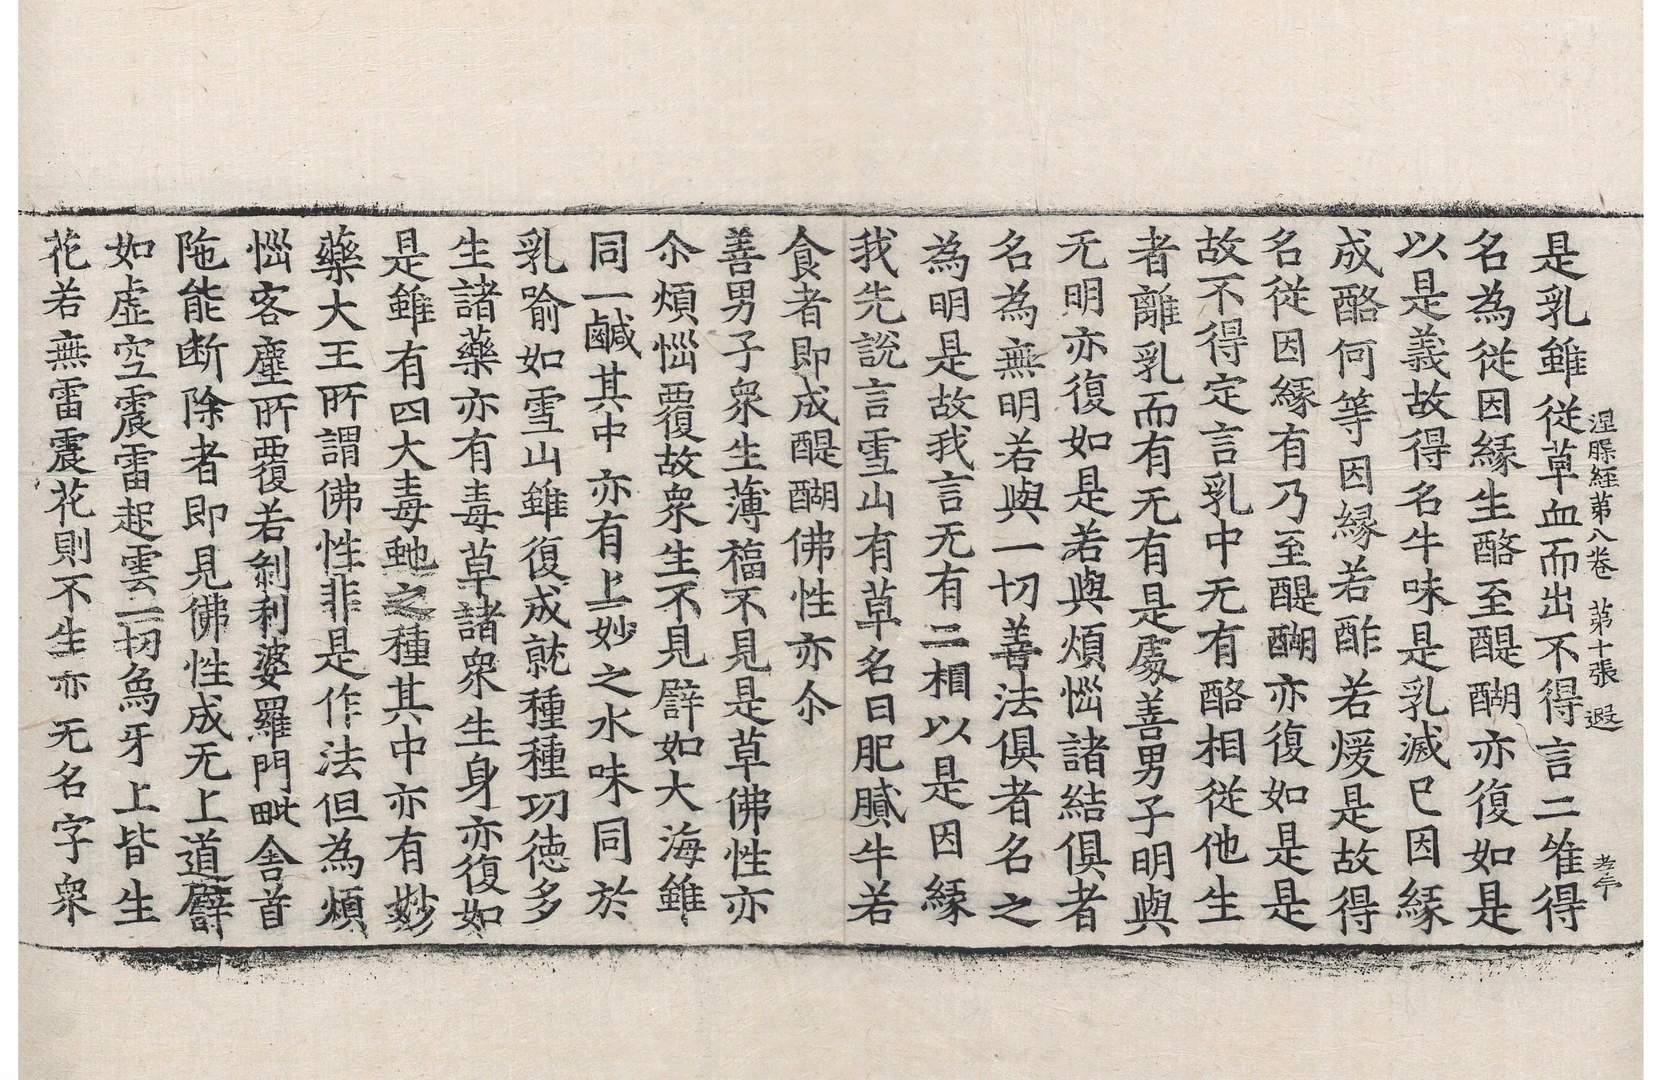 涅槃經第八卷 第十張 遐
是乳雖從草血而出不得言二唯得
名為從因緣生酪至醍醐亦復如是
以是義故得名牛味是乳滅已因緣
成酪何等因緣若酢若煖是故得
名從因緣有乃至醍醐亦復如是是
故不得定言乳中无有酪相從他生
者離乳而有无有是處善男子明與
无明亦復如是若與煩惱諸結俱者
名為無明若與一切善法俱者名之
為明是故我言无有二相以是因緣
我先說言雪山有草名曰肥膩牛若
食者即成醍醐佛性亦尒
善男子衆生薄福不見是草佛性亦
尒煩惱覆故衆生不見譬如大海雖
同一鹹其中亦有上妙之水味同於
乳喻如雪山雖復成就種種功德多
生諸藥亦有毒草諸衆生身亦復如
是雖有四大毒虵之種其中亦有妙
藥大王所謂佛性非是作法但為煩
惱客塵所覆若刹利婆羅門毗舍首
陁能断除者即見佛性成无上道譬
如虛空震雷起雲一切象牙上皆生
花若無雷震花則不生亦无名字衆